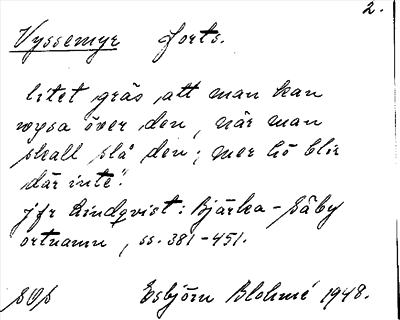 2.
Vyssemyr forts.
litet gräs att man kan
vyssa över den, när man
skall slå den; mer hö blir
där inte".
jfr Lindqvist: Bjärka-Säby
ortnamn, ss. 381-451.
SOS Esbjörn Blohmé 1948.